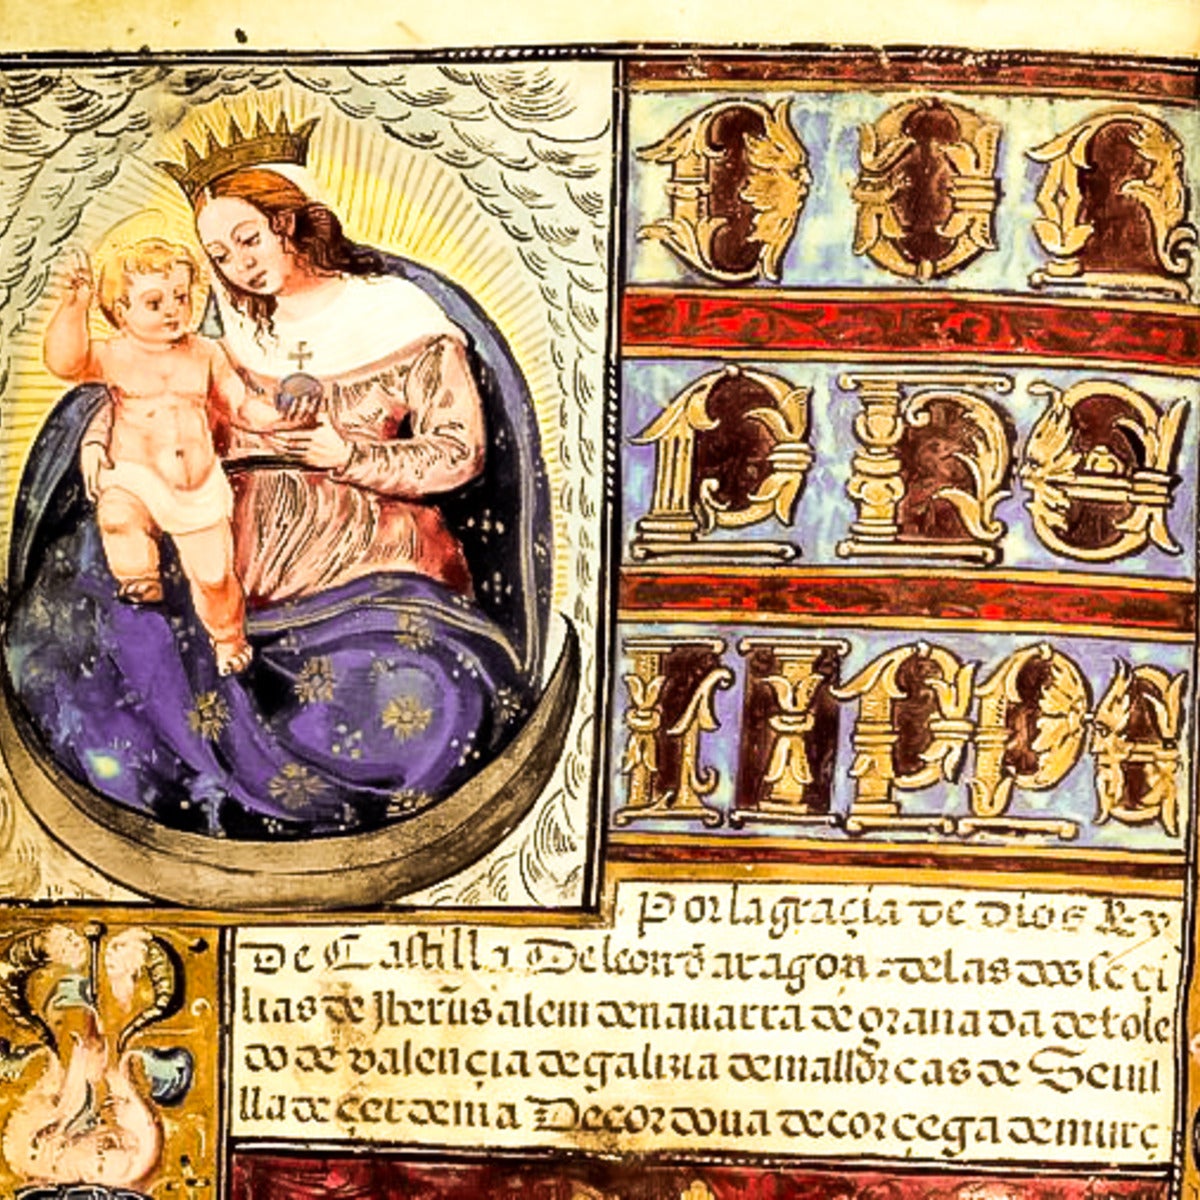 DON
PHE
LIPPE
Por la graçia de dios Rey
De Castilla De leon d̄ aragon de las dos seçi
lias de Jherūsalem de nauarra de granada de tole
do de valençia de galizia de mallorcas de Seuil
lla de çerdenia De cordoua de corçega de murç